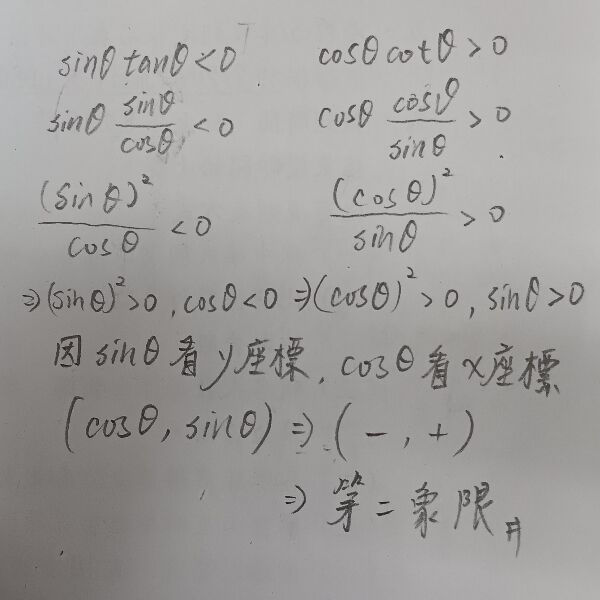 sinθ tanθ < 0 cosθ cotθ > 0
sinθ sinθ/cosθ < 0 cosθ cosθ/sinθ > 0
(sinθ)²/cosθ < 0 (cosθ)²/sinθ > 0
⇒(sinθ)²>0, cosθ<0 ⇒(cosθ)²>0, sinθ>0
因 sinθ 看 y 座標, cosθ 看 x 座標
(cosθ, sinθ) ⇒ (－, +)
⇒ 第二象限 #